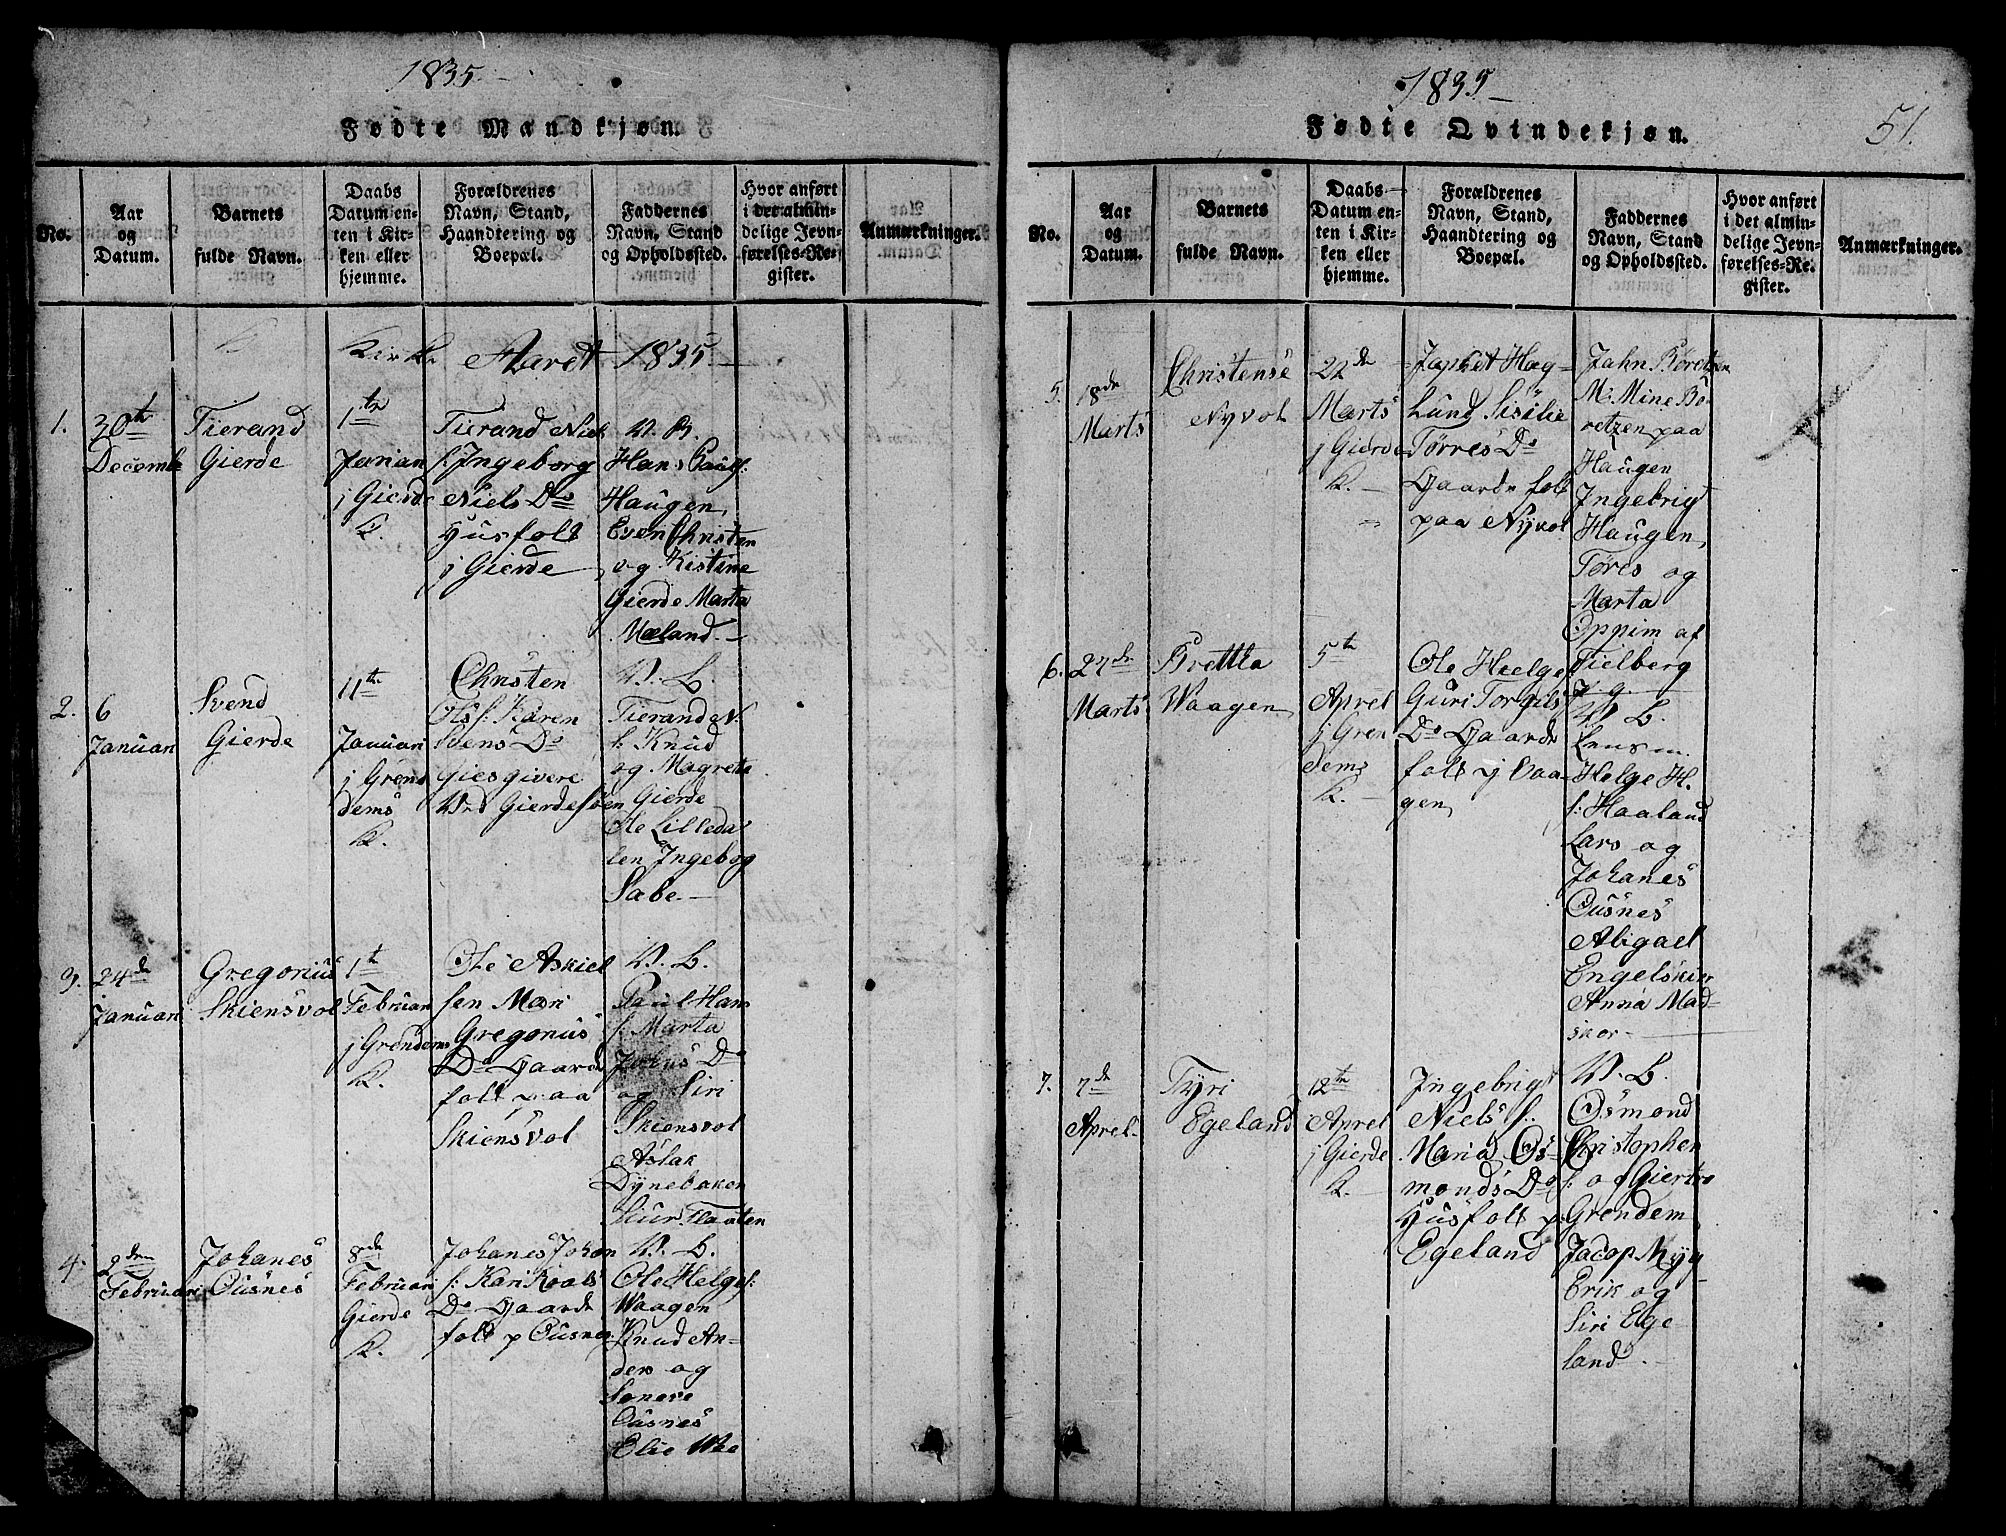 1835.-
Fødte Mandkjøn.
No.
Aar
og
Datum.
Barnets
fulde Navn.
Daabs
Datum en-
ten i Kir-
ken eller
hjemme.
Forældrenes
Navn, Stand,
Haandtering og
Boepæl.
Faddernes
Navn, Stand
og Opholdssted.
Hvor anført
i det almin-
delige Jevn-
førelses-Re-
gister.
Anmærkninger.
Kirke Aaret 1835.-
1.
30te
Decembe
Tierand
Gierde
1te
Januari
j Gierde
K.
Tierand Niels
s: Ingeborg
Niels Ds
Husfolk
j Gierde
V. B.
Hans Paulf:
Haugen,
Even Christen
og Kistine
Gierde Marta
Mæland.-
2.
6
Januari
Svend
Gierde
11te
Januari
j Grøns
dems
K.
Christen
Ols s: Karen
Svens Ds
giesgivere
Ved Gierdesøen
V. L.
Tierand N.
s: Knud
og Magrete
Gierde
Ole Lilleda
len Ingebog
Sabe.-
3.
24de
Januari
Gregorius
Skiensvol
1te
Februari
j Grøndems
K.
Ole Askiel
sen Mari
Gregorius
Ds Gaarde
folk paa
Skiensvol
V. L.
Paul Hans
s: Marta
Johns Ds
og Siri
Skiensvol
Aslak
Dynebaken
Siur Flaaten
4.
2den
Februari
Johanes
Ousnes
8de
Februari
Gierde
K.
Johanes Johan
s: Kari Roals
Ds Gaarde
folk p Ousnes
V. L.
Ole Helges:
Waagen
Knud An-
ders og
Senere
Ousnes
Elie Wee
1835-
51.
Fødte Qvindekjøn.
No.
Aar
og
Datum.
Barnets
fulde Navn.
Daabs-
Datum en-
ten i Kir-
ken eller
hjemme.
Forældrenes
Navn, Stand,
Haandtering og
Boepæl.
Faddernes
Navn, Stand
og Opholdssted.
Hvor anført
i det almin-
delige Jevn-
førelses-Re-
gister.
Anmærkninger.
5.
18de
Marts
Christense
Nyvol
22de
Marts
j Gierde
K.-
Japhet Hag-
Lund Sisilie
Tørres Ds
Gaarde folk
paa Nyvol
Jahn Børetzen
M: Mine Bø-
retzen paa
Haugen
Ingebrigt
Haugen,
Tøres og
Marta
Oppim af
Fielberg
6.
27de
Marts
Brettha
Waagen
5te
Aprel
j Grøn
dems
K.-
Ole Helge
Guri Torgils
Ds Gaarde
folk j Vaa-
gen
V. L.
Lensm.
Helge H.
s: Haaland
Lars og
Johanes
Ousnes
Abigael
Engelskier
Anna Mad-
skor-
7.
7de
Aprel
Tyri
Egeland
12te
Aprel
j Gierde
K.-
Ingebrigt
Niels s:
Maria Os-
monds Ds
Husfolk p
Egeland
V. L.
Osmond
Christophen
s: og Giertro
Grendem
Jacop Myg
Erik og
Siri Ege
land.-